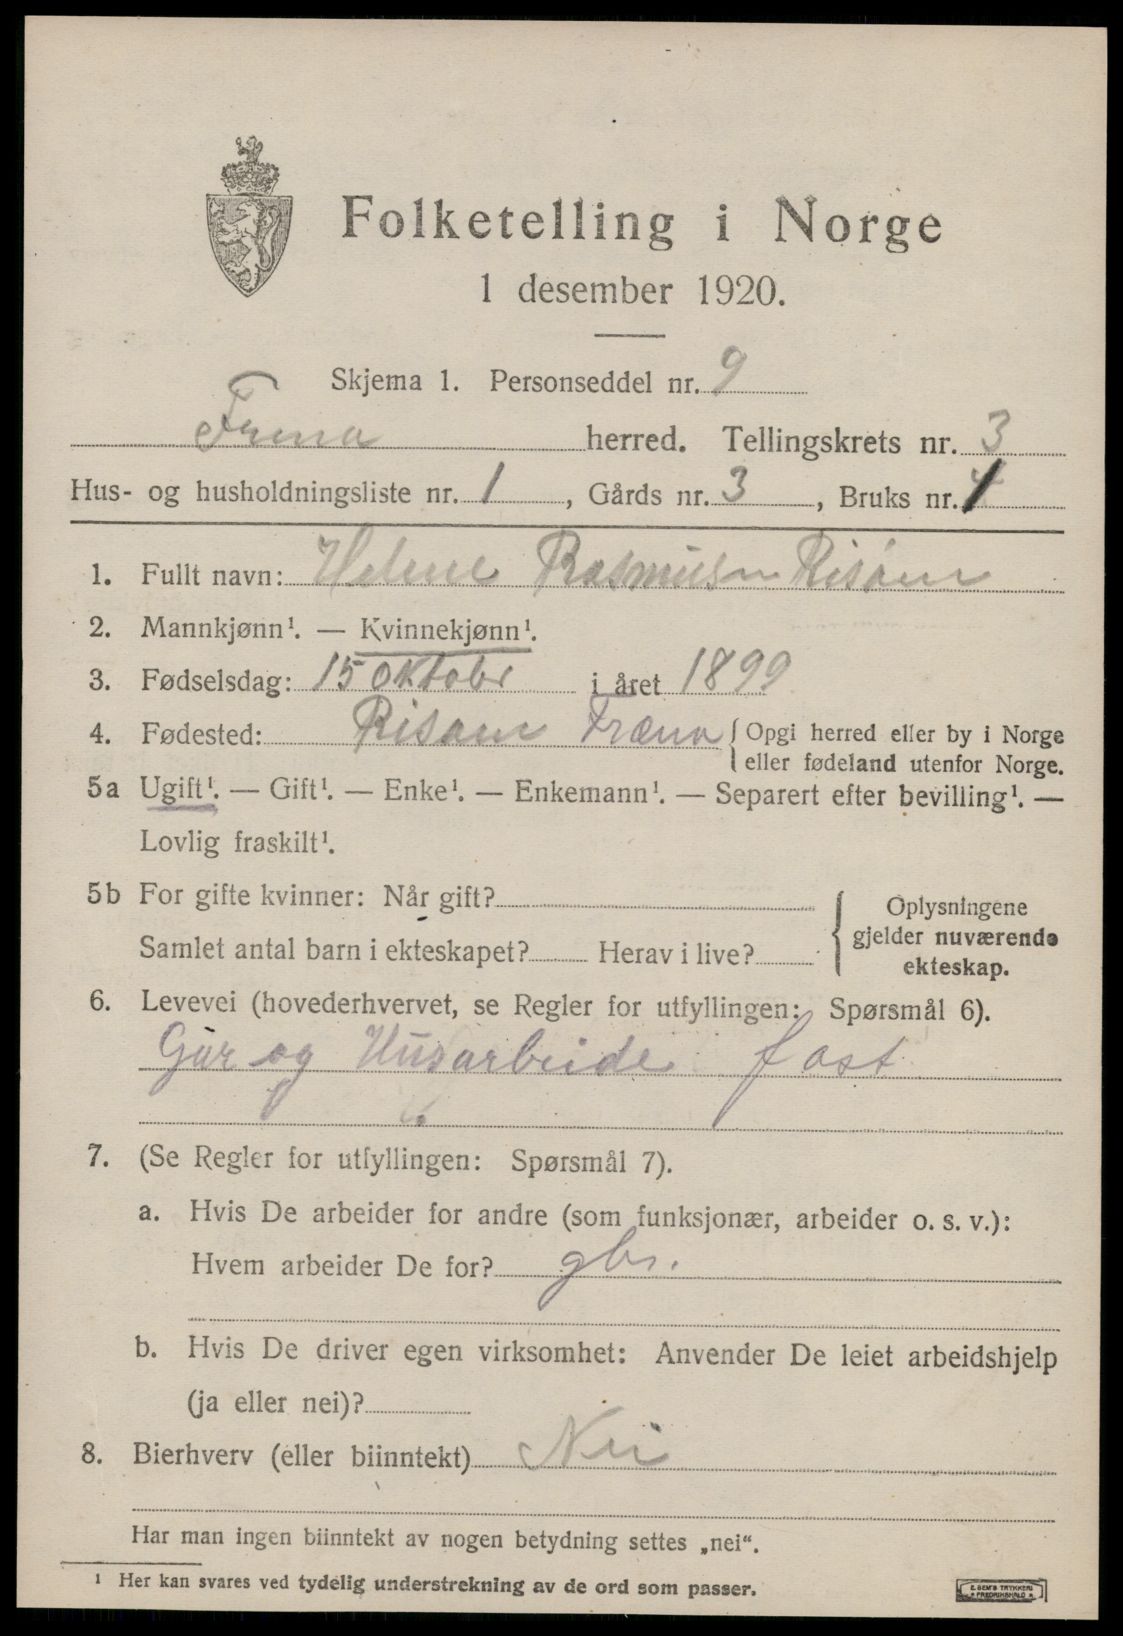 Folketelling i Norge
1 desember 1920.
Skjema 1. Personseddel nr. 9
Frena herred. Tellingskrets nr. 3
Hus- og husholdningsliste nr. 1, Gårds nr. 3, Bruks nr. 1
1. Fullt navn: Helene Rasmusen Risøen
2. Mannkjønn¹. — Kvinnekjønn¹.
3. Fødselsdag: 15 oktober i året 1899
4. Fødested: Fræna { Opgi herred eller by i Norge
eller fødeland utenfor Norge.
5a Ugift¹. — Gift¹. — Enke¹. — Enkemann¹. — Separert efter bevilling¹. —
Lovlig fraskilt¹.
5b For gifte kvinner: Når gift?
Samlet antal barn i ekteskapet? Herav i live?
{ Oplysningene
gjelder nuværende
ekteskap.
6. Levevei (hovederhvervet, se Regler for utfyllingen: Spørsmål 6).
Går og Husarbeide fast
7. (Se Regler for utfyllingen: Spørsmål 7).
a. Hvis De arbeider for andre (som funksjonær, arbeider o. s. v.):
Hvem arbeider De for? gbr.
b. Hvis De driver egen virksomhet: Anvender De leiet arbeidshjelp
(ja eller nei)?
8. Bierhverv (eller biinntekt) Nei
Har man ingen biinntekt av nogen betydning settes „nei“.
¹ Her kan svares ved tydelig understrekning av de ord som passer.
E. SEM'S TRYKKERI
* FREDRIKSHALD *